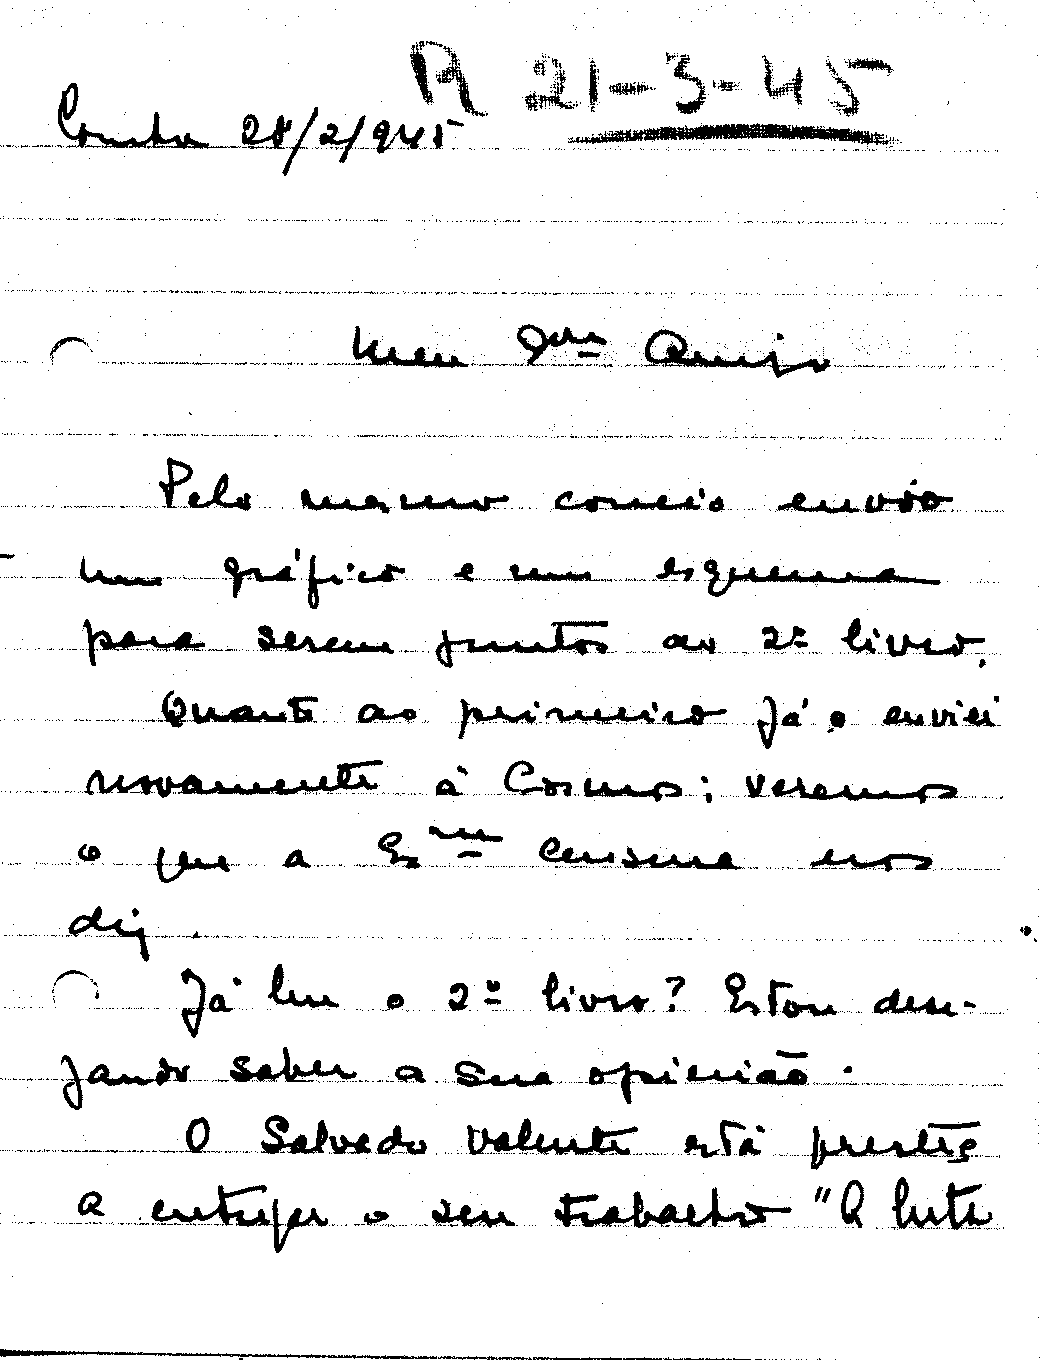 R 21-3-45
Coimbra 28/2/945
Meu Exmo Amigo
Pelo mesmo correio envio
um gráfico e um esquema
para serem juntos ao 2º livro.
Quanto ao primeiro já o enviei
novamente à Cosmos; veremos
o que a Exma Censura nos
diz.
Já leu o 2º livro? Estou dese-
jando saber a sua opinião.
O Salvado Valente está prestes
a entregar o seu trabalho "A luta